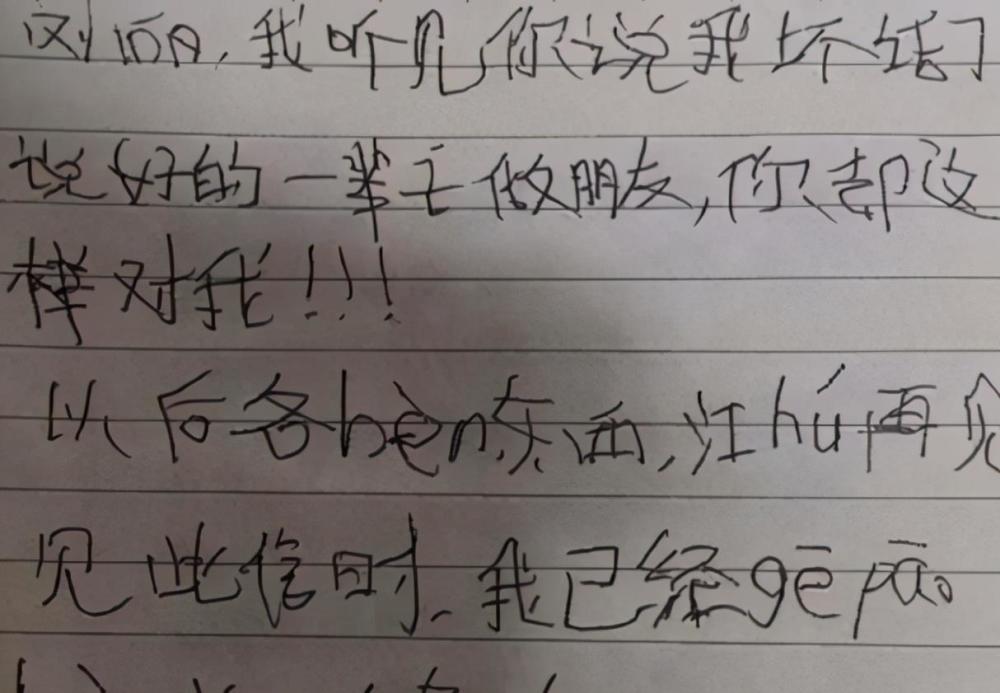 我听见你说我坏话了
说好的一辈子做朋友,你却这
样对我!!!
以后各bèn东西,江hú再见
见此信时,我已经gē pāo。